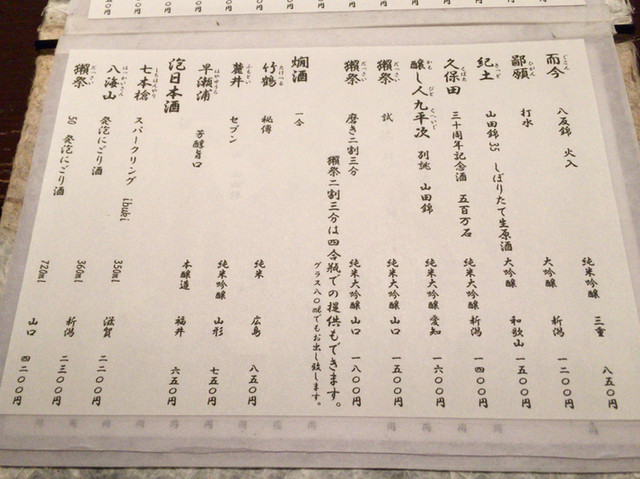 じこん
而今 八反錦 火入 純米吟醸 三重 八五〇円
ひがん
鄙願 打水 大吟醸 新潟 一二〇〇円
きっど
紀土 山田錦35 しぼりたて生原酒 大吟醸 和歌山 一五〇〇円
くぼた
久保田 三十周年記念酒 五百万石 純米大吟醸 新潟 一四〇〇円
かも びと くへいじ
醸し人九平次 別誂 山田錦 純米大吟醸 愛知 一六〇〇円
だっさい
獺祭 試 純米大吟醸 山口 一五〇〇円
だっさい
獺祭 磨き二割三分 純米大吟醸 山口 一八〇〇円
獺祭二割三分は四合瓶での提供もできます。
グラス八〇㎖でもお出し致します。
燗酒 一合
たけつる
竹鶴 秘傳 純米 広島 八五〇円
ふもとい
麓井 セブン 純米吟醸 山形 七五〇円
はやせうら
早瀬浦 芳醇旨口 本醸造 福井 六五〇円
泡日本酒
しちほんやり
七本槍 スパークリング ibuki 350ml 滋賀 二二〇〇円
はっかいさん
八海山 発泡にごり酒 360ml 新潟 二三〇〇円
だっさい
獺祭 50 発泡にごり酒 720ml 山口 四二〇〇円